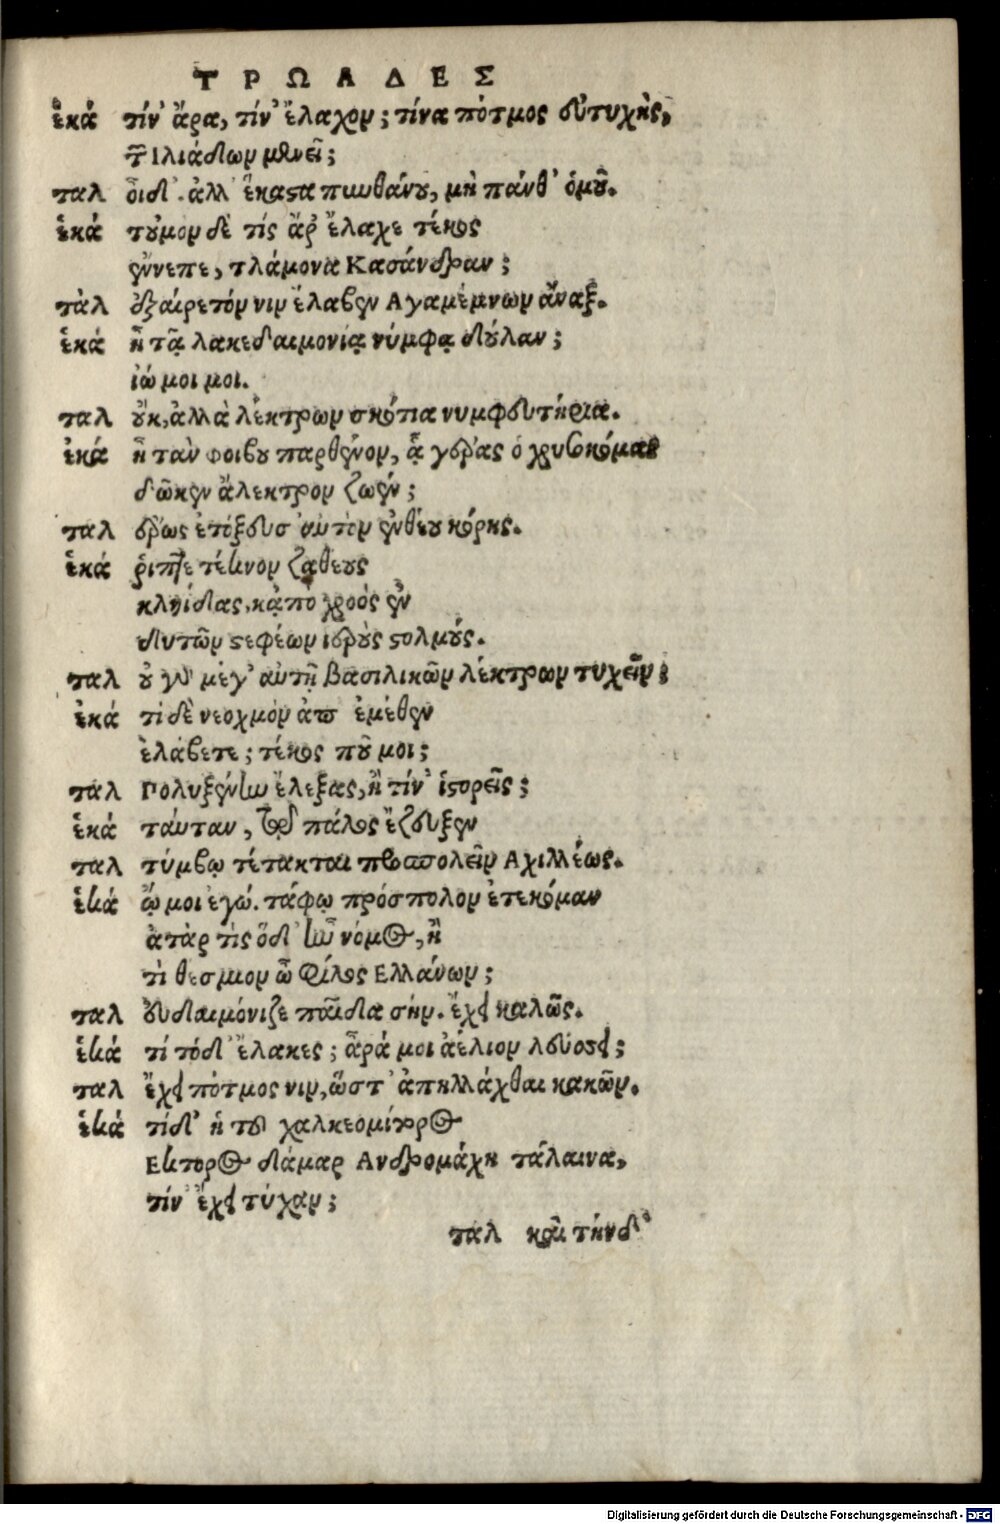 ΤΡΩΑΔΕΣ
ἑκά τίν' ἄρα, τίν' ἔλαχον; τίνα πότμος εὐτυχὴς,
τῶν Ιλιάδων μένει;
ταλ οἶδ'. ἀλλ' ἕκαστα πυνθάνου, μὴ πάνθ' ὁμοῦ.
ἑκά τοὐμὸν δὲ τίς ἄρ' ἔλαχε τέκος
ἔννεπε, τλάμονα Κασάνδραν;
ταλ ἐξαίρετόν νιν ἔλαβεν Αγαμέμνων ἄναξ.
ἑκά ἦ τᾷ λακεδαιμονίᾳ νύμφᾳ δούλαν;
ἰώ μοι μοι.
ταλ οὐκ, ἀλλὰ λέκτρων σκότια νυμφευτήρια.
ἑκά ἦ τὰν φοίβου παρθένον, ᾇ γέρας ὁ χρυσοκόμας
δῶκεν ἄλεκτρον ζωὰν;
ταλ ἔρως ἐτόξευσ' αὐτὸν ἐνθέου κόρης.
ἑκά ῥίπτε τέκνον ζαθέους
κληίδας, κἀπὸ χροός ἐν
δυτῶν στεφέων ἱεροὺς στολμούς.
ταλ οὐ γὰρ μέγ' αὐτῇ βασιλικῶν λέκτρων τυχεῖν;
ἑκά τί δὲ νεοχμὸν ἀπ' ἐμέθεν
ἐλάβετε; τέκος ποῦ μοι;
ταλ Πολυξένην ἔλεξας, ἢ τίν' ἱστορεῖς;
ἑκά ταύταν, τῷ πάλος ἔζευξεν
ταλ τύμβῳ τέτακται προσπολεῖν Αχιλλέως.
ἑκά ᾤμοι ἐγώ. τάφῳ πρόσπολον ἐτεκόμαν
ἀτὰρ τίς ὅδ' ἦν νόμος, ἢ
τί θέσμιον ὦ φίλος Ελλάνων;
ταλ εὐδαιμόνιζε παῖδα σήν. ἔχει καλῶς.
ἑκά τί τόδ' ἔλακες; ἆρά μοι ἀέλιον λεύσσει;
ταλ ἔχει πότμος νιν, ὥστ' ἀπηλλάχθαι κακῶν.
ἑκά τίδ' ἡ τοῦ χαλκεομίτορος
Εκτορος δάμαρ Ανδρομάχη τάλαινα,
τίν' ἔχει τύχαν;
ταλ καὶ τήνδ'
Digitalisierung gefördert durch die Deutsche Forschungsgemeinschaft - DFG